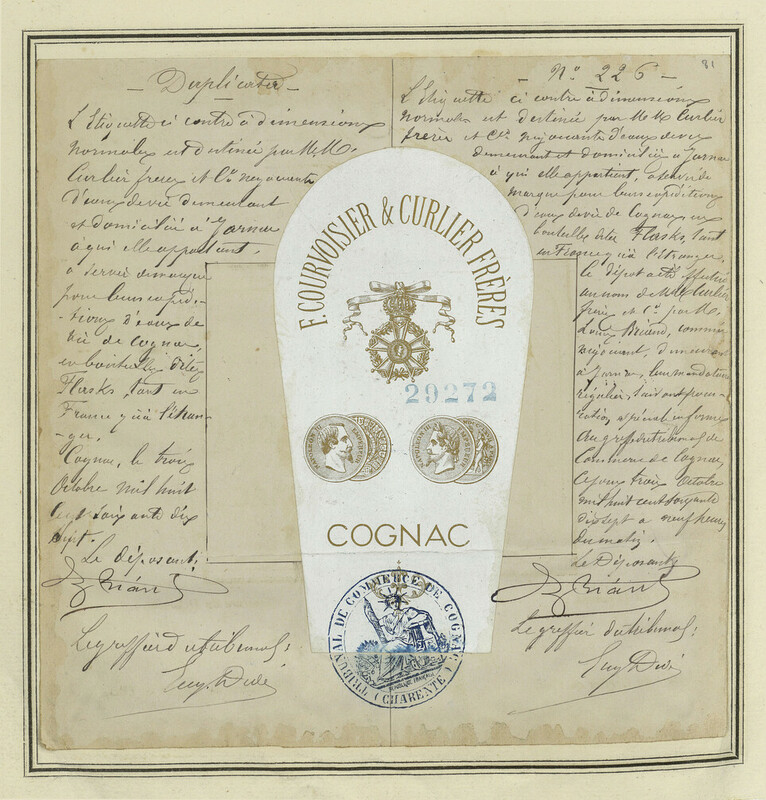 Duplicata
L'Etiquette ci contre à dimensions
normales est destinée par M.M.
Curlier frères et Cie négociants
d'eaux de vie demeurant
et domiciliés à Jarnac
à qui elle appartient,
à servir de marque
pour leurs expédi-
tions d'eaux de
vie de Cognac,
en bouteilles dites
Flasks, tant en
France qu'à l'étran-
ger.
Cognac, le trois
Octobre mil huit
cent soixante dix
sept.
Le déposant,
Le greffier du tribunal:
F. COURVOISIER & CURLIER FRÈRES
29272
NAPOLEON III EMPEREUR
NAPOLEON III EMPEREUR
COGNAC
TRIBUNAL DE COMMERCE DE COGNAC
(CHARENTE)
No 226
81
L'Etiquette ci contre à dimensions
normales est destinée par M.M. Curlier
frères et Cie négociants d'eaux de vie
demeurant et domiciliés à Jarnac
à qui elle appartient, à servir de
marque pour leurs expéditions
d'eaux de vie de Cognac en
bouteilles dites Flasks, tant
en France qu'à l'étranger.
Le dépôt a été effectué
au nom de M.M. Curlier
frères et Cie par M.
Louis Briand, commis
négociant, demeurant
à Jarnac, leur mandataire
régulier, suivant procu-
ration, spéciale en forme
au greffe du tribunal de
Commerce de Cognac,
ce jour trois Octobre
mil huit cent soixante
dix sept à neuf heures
du matin.
Le Déposant,
Le greffier du tribunal: